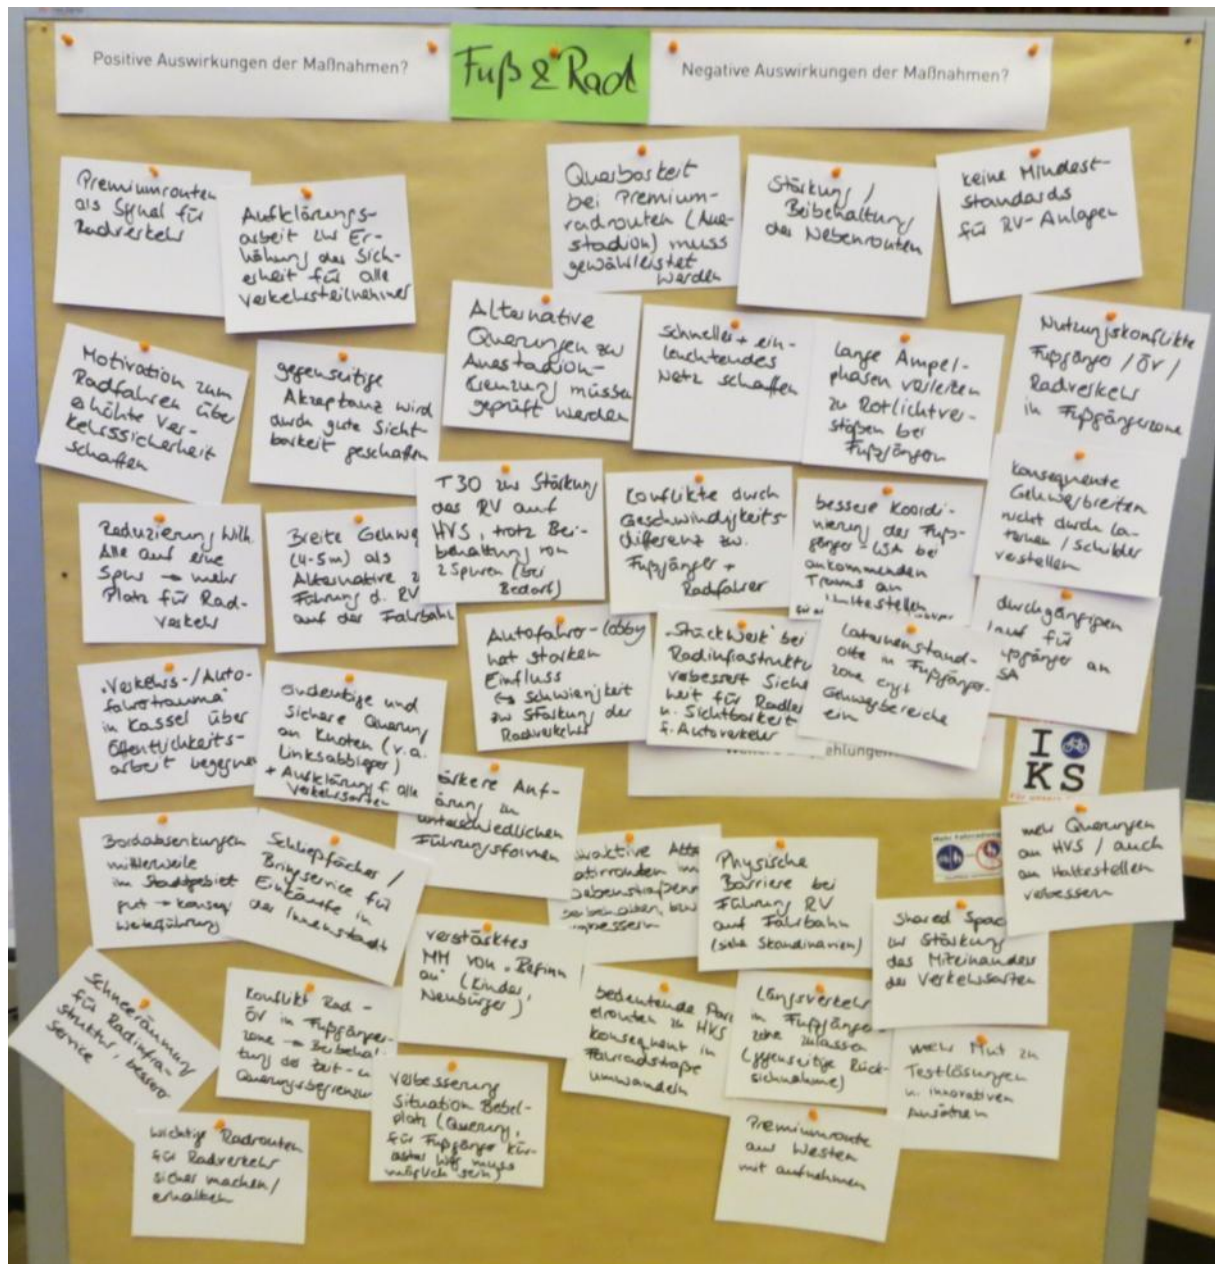 Positive Auswirkungen der Maßnahmen?
Fuß & Rad
Negative Auswirkungen der Maßnahmen?
Premiumrouten
als Signal für
Radverkehr
Aufklärungs-
arbeit zur Er-
höhung der Sich-
erheit für alle
Verkehrsteilnehmer
Querbarkeit
bei Premium-
radrouten (Aue-
stadion) muss
gewährleistet
werden
Stärkung /
Beibehaltung
der Nebenrouten
keine Mindest-
standards
für RV-Anlagen
Motivation zum
Radfahren über
erhöhte Ver-
kehrssicherheit
schaffen
gegenseitige
Akzeptanz wird
durch gute Sicht
barkeit geschaffen
Alternative
Querungen zu
Auestadion-
Kreuzung müssen
geprüft werden
schnelles + ein-
leuchtendes
Netz schaffen
lange Ampel-
phasen verleiten
zu Rotlichtver-
stößen bei
Fußgängern
Nutzungskonflikte
Fußgänger / ÖV /
Radverkehr
in Fußgängerzone
Reduzierung Wilh.
Alle auf eine
Spur → mehr
Platz für Rad-
verkehr
Breite Gehweg
(4-5m) als
Alternative z
Führung d. RV
auf der Fahrbahn
T30 zur Stärkung
des RV auf
HVS, trotz Bei-
behaltung von
2 Spuren (bei
Bedarf)
Konflikte durch
Geschwindigkeits-
differenz zw.
Fußgänger +
Radfahrer
bessere Koordi-
nierung der Fuß-
gänger-LSA bei
ankommenden
Trams an
konsequente
Gehwegbreiten
nicht durch La-
ternen / Schilder
verstellen
"Verkehrs-/Auto-
fahrertrauma"
in Kassel über
Öffentlichkeits-
arbeit begegnen
eindeutige und
sichere Querung
an Knoten (v.a.
Linksabbieger)
+ Aufklärung f. alle
Verkehrsarten
Autofahrer-lobby
hat starken
Einfluss
↳ Schwierigkeit
zur Stärkung der
Radverkehrs
"Stückwerk" bei
Radinfrastruktu
verbessert Siche
heit für Radler
u. Sichtbarkeit
f. Autoverkehr
Laternenstand-
orte in Fußgänger-
zone engt
Gehwegbereiche
ein
durchgängigen
lauf für
ußgänger an
SA
I
KS
Bordabsenkungen
mittlerweile
im Stadtgebiet
gut → konseq.
Weiterführung
Schließfächer /
Bringservice für
Einkäufe in
der Innenstadt
ärkere Auf-
ärung zu
unterschiedlichen
Führungsformen
Physische
Barriere bei
Führung RV
auf Fahrbahn
(siehe Skandinavien)
mehr Querungen
an HVS / auch
an Haltestellen
verbessern
Shared Spac
zur Stärkung
des Miteinanders
der Verkehrsarten
Schneeräumung
für Radinfra-
struktur, besserer
Service
Konflikt Rad-
ÖV in Fußgänger-
zone → Beibehal
tung der Zeit- u
Querungsbegrenzun
verstärktes
MM von "Beginn
an" (Kinder,
Neubürger)
bedeutende Par
elrouten zu HVS
konsequent in
Fahrradstraße
umwandeln
Längsverkehr
in Fußgänger-
zone zulassen
(gegenseitige Rück-
sichnahme)
mehr Mut zu
Testlösungen
u. innovativen
Ansätzen
wichtige Radrouten
für Radverkehr
sicher machen/
erhalten
Verbesserung
Situation Bebel-
platz (Querung,
für Fußgänger kür-
zester Weg muss
möglich sein)
Premiumroute
aus Westen
mit aufnehmen